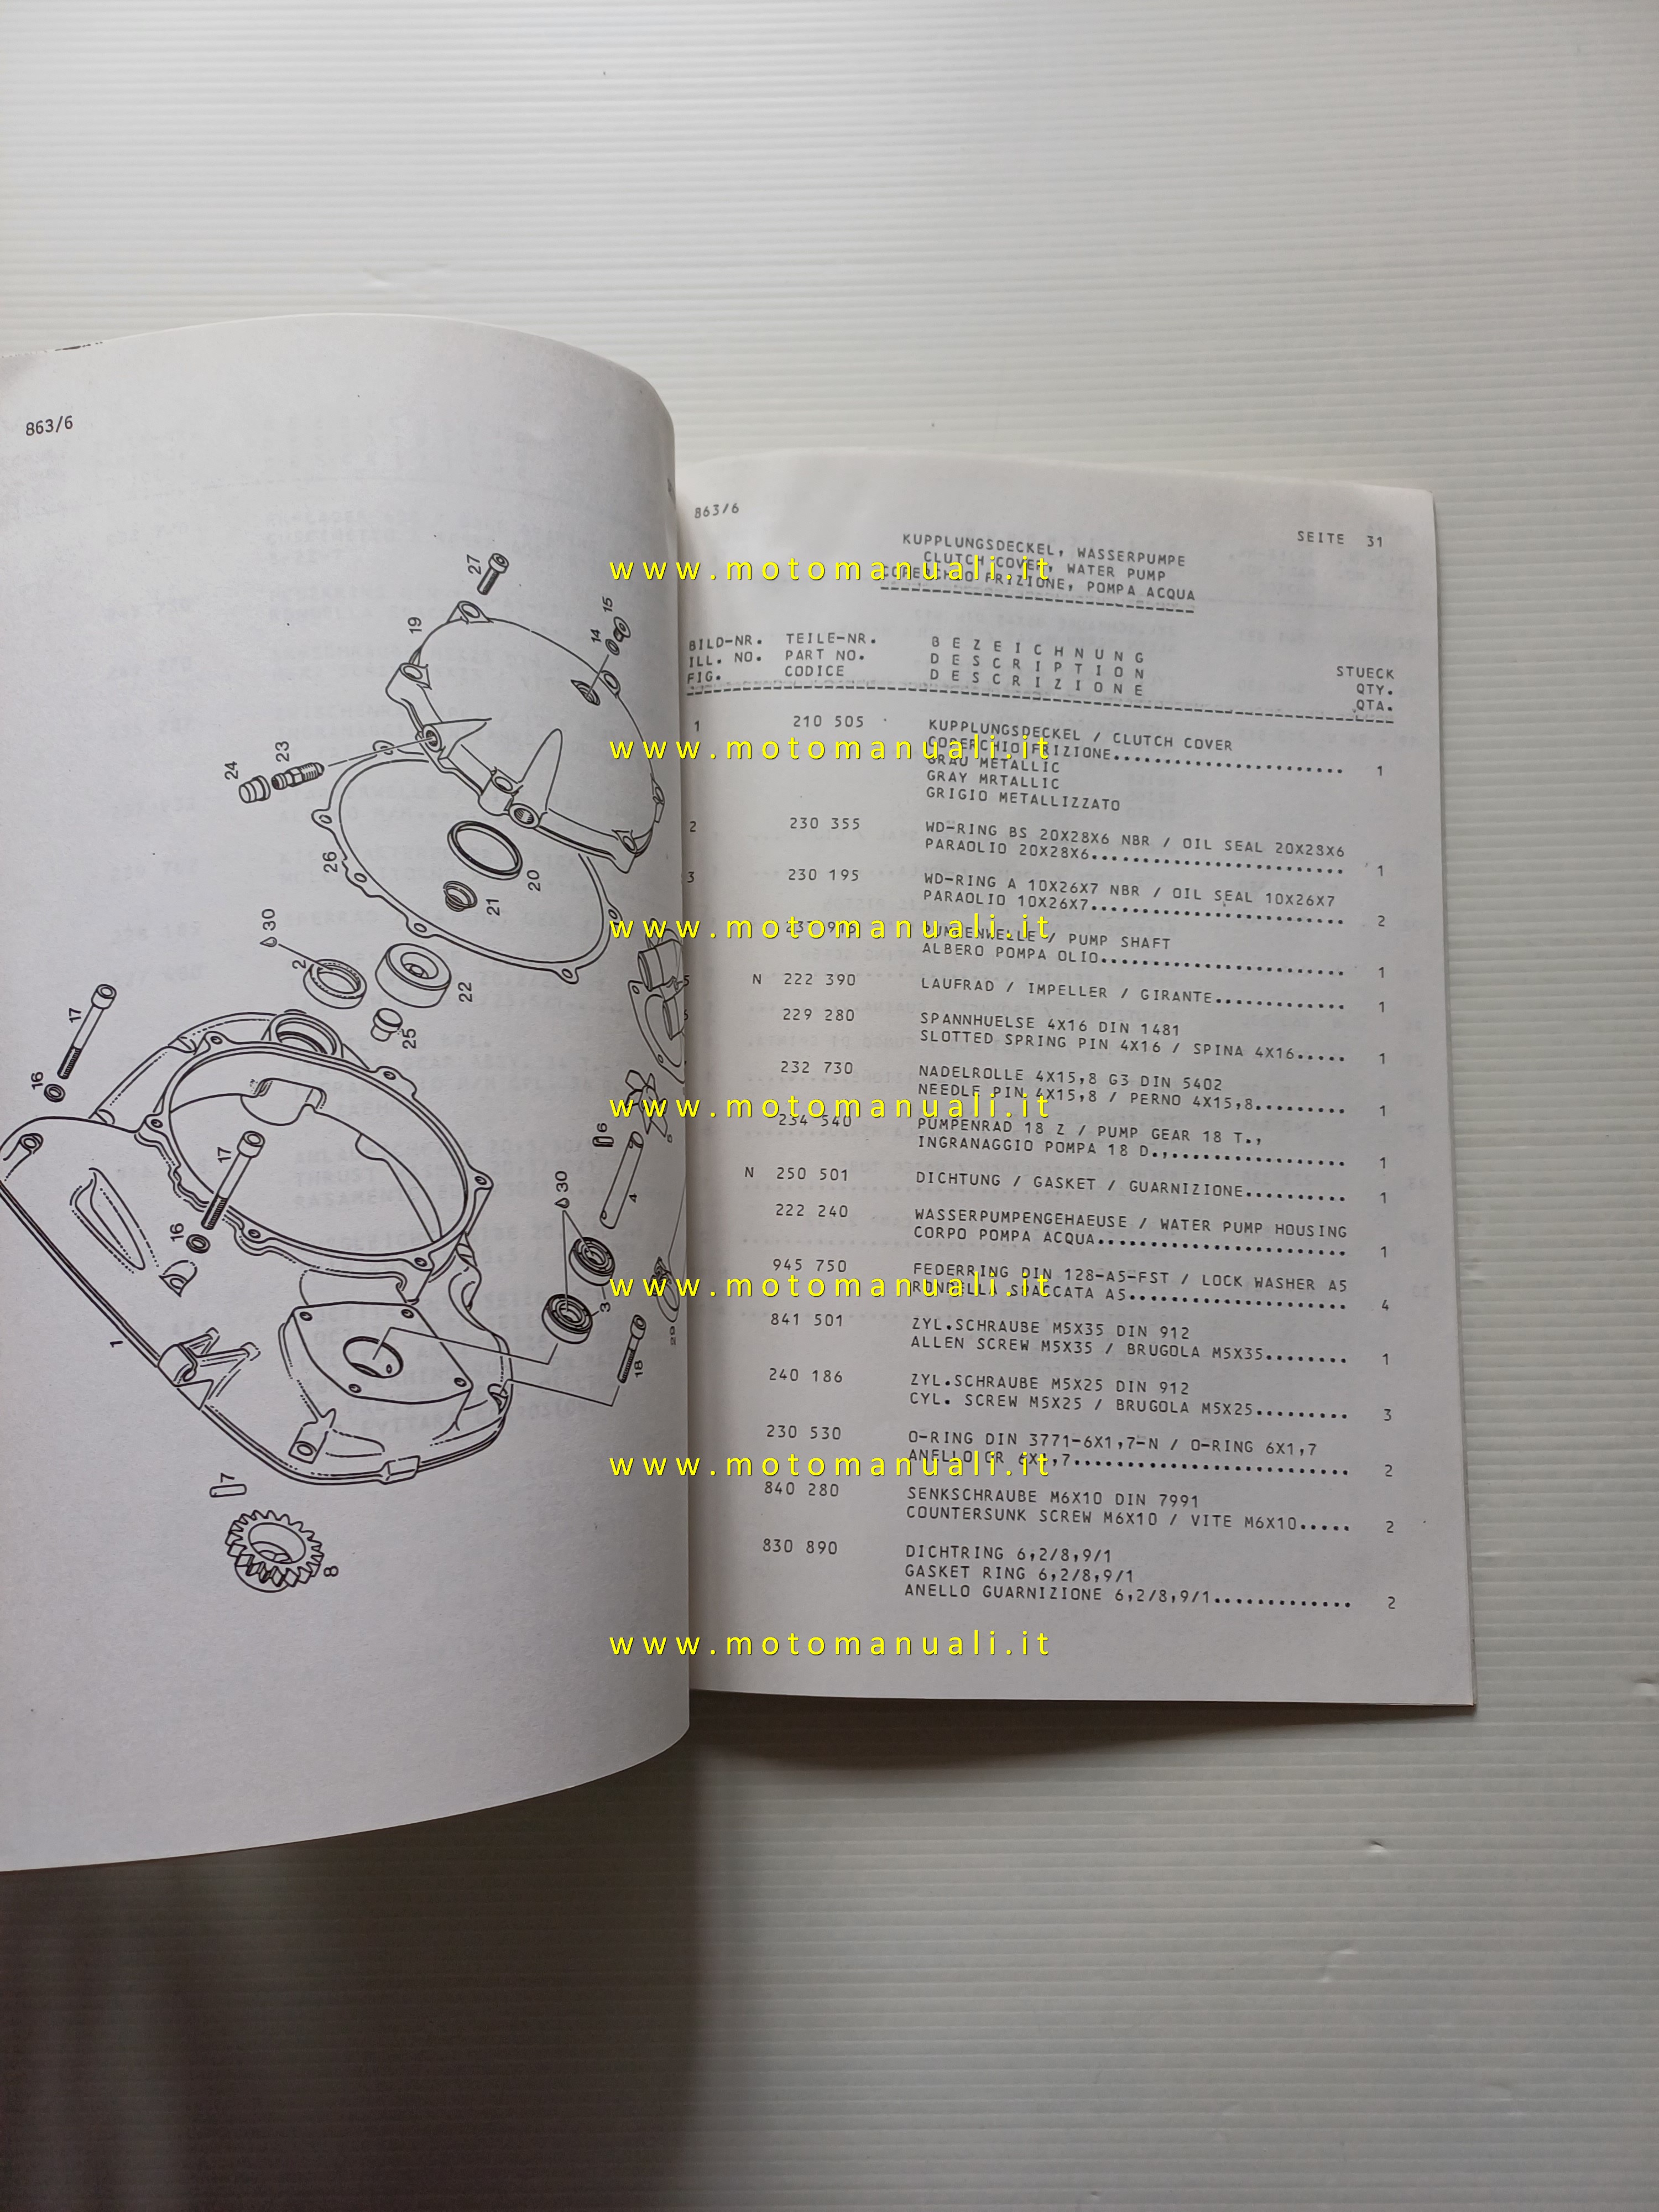 863/6
27
19
15
14
24
23
26
20
21
30
2
22
25
17
16
17
16
6
4
30
3
18
29
1
7
8
863/6
SEITE 31
KUPPLUNGSDECKEL, WASSERPUMPE
CLUTCH COVER, WATER PUMP
COPERCHIO FRIZIONE, POMPA ACQUA
BILD-NR. TEILE-NR. B E Z E I C H N U N G STUECK
ILL. NO. PART NO. D E S C R I P T I O N QTY.
FIG. CODICE D E S C R I Z I O N E QTA.
1 210 505 KUPPLUNGSDECKEL / CLUTCH COVER
COPERCHIO FRIZIONE....................... 1
GRAU METALLIC
GRAY MRTALLIC
GRIGIO METALLIZZATO
2 230 355 WD-RING BS 20X28X6 NBR / OIL SEAL 20X28X6
PARAOLIO 20X28X6......................... 1
3 230 195 WD-RING A 10X26X7 NBR / OIL SEAL 10X26X7
PARAOLIO 10X26X7......................... 2
/ PUMP SHAFT
ALBERO POMPA OLIO........................ 1
N 222 390 LAUFRAD / IMPELLER / GIRANTE............. 1
229 280 SPANNHUELSE 4X16 DIN 1481
SLOTTED SPRING PIN 4X16 / SPINA 4X16..... 1
232 730 NADELROLLE 4X15,8 G3 DIN 5402
NEEDLE PIN 4X15,8 / PERNO 4X15,8......... 1
234 540 PUMPENRAD 18 Z / PUMP GEAR 18 T.,
INGRANAGGIO POMPA 18 D.,................. 1
N 250 501 DICHTUNG / GASKET / GUARNIZIONE.......... 1
222 240 WASSERPUMPENGEHAEUSE / WATER PUMP HOUSING
CORPO POMPA ACQUA........................ 1
945 750 FEDERRING DIN 128-A5-FST / LOCK WASHER A5
RONDELLA SPACCATA A5..................... 4
841 501 ZYL.SCHRAUBE M5X35 DIN 912
ALLEN SCREW M5X35 / BRUGOLA M5X35........ 1
240 186 ZYL.SCHRAUBE M5X25 DIN 912
CYL. SCREW M5X25 / BRUGOLA M5X25......... 3
230 530 O-RING DIN 3771-6X1,7-N / O-RING 6X1,7
ANELLO OR 6X1,7.......................... 2
840 280 SENKSCHRAUBE M6X10 DIN 7991
COUNTERSUNK SCREW M6X10 / VITE M6X10..... 2
830 890 DICHTRING 6,2/8,9/1
GASKET RING 6,2/8,9/1
ANELLO GUARNIZIONE 6,2/8,9/1............. 2
www.motomanuali.it
www.motomanuali.it
www.motomanuali.it
www.motomanuali.it
www.motomanuali.it
www.motomanuali.it
www.motomanuali.it